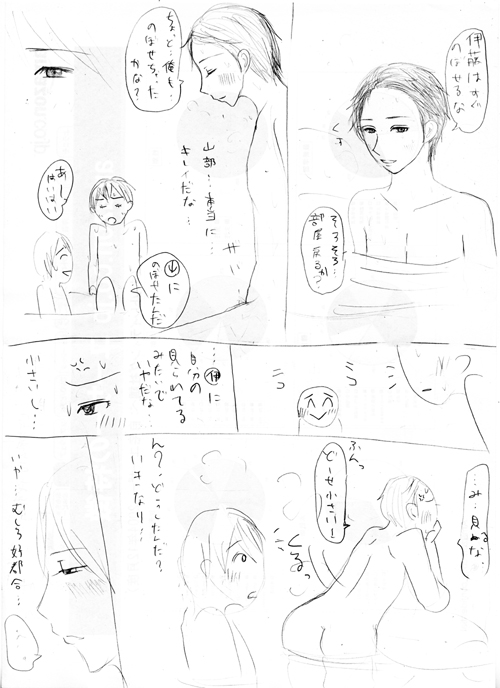 伊藤はすぐ
のぼせるな
そろそろ
部屋戻るか?
ちょ、ど…俺も
のぼせちゃった
かな?
山部…本当に
キレイだな…
あー
はいはい
↓に
のぼせたんだ
…㋑に
自分の
見られてる
みたいで
いやだな…
小さいし…
ニコ
ニコ
…み…見るな…
ふんっ
どーせ小さい!
くるっ
ん?…どうしたんだ?
いきなり…
いや…むしろ好都合…